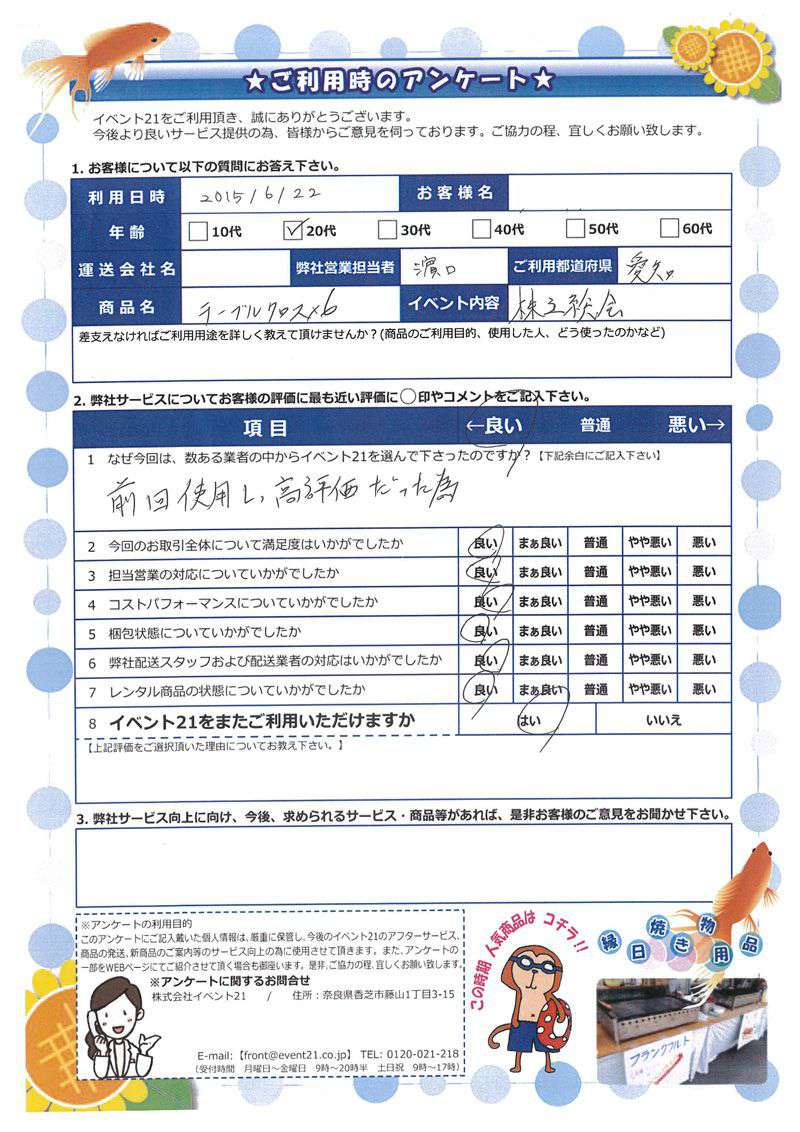 ★ご利用時のアンケート★
イベント21をご利用頂き、誠にありがとうございます。
今後より良いサービス提供の為、皆様からご意見を伺っております。ご協力の程、宜しくお願い致します。
1. お客様について以下の質問にお答え下さい。
利用日時 2015/6/22 お客様名
年齢 10代 20代 30代 40代 50代 60代
運送会社名 弊社営業担当者 濵口 ご利用都道府県 愛知
商品名 テーブルクロス×6 イベント内容 株主総会
差支えなければご利用用途を詳しく教えて頂けませんか？(商品のご利用目的、使用した人、どう使ったのかなど)
2. 弊社サービスについてお客様の評価に最も近い評価に○印やコメントをご記入下さい。
項目 ←良い 普通 悪い→
1 なぜ今回は、数ある業者の中からイベント21を選んで下さったのですか？【下記余白にご記入下さい】
前回使用し、高評価だった為
2 今回のお取引全体について満足度はいかがでしたか 良い まぁ良い 普通 やや悪い 悪い
3 担当営業の対応についていかがでしたか 良い まぁ良い 普通 やや悪い 悪い
4 コストパフォーマンスについていかがでしたか 良い まぁ良い 普通 やや悪い 悪い
5 梱包状態についていかがでしたか 良い まぁ良い 普通 やや悪い 悪い
6 弊社配送スタッフおよび配送業者の対応はいかがでしたか 良い まぁ良い 普通 やや悪い 悪い
7 レンタル商品の状態についていかがでしたか 良い まぁ良い 普通 やや悪い 悪い
8 イベント21をまたご利用いただけますか はい いいえ
【上記評価をご選択頂いた理由についてお教え下さい。】
3. 弊社サービス向上に向け、今後、求められるサービス・商品等があれば、是非お客様のご意見をお聞かせ下さい。
※アンケートの利用目的
このアンケートにご記入戴いた個人情報は、厳重に保管し、今後のイベント21のアフターサービス、
商品の発送、新商品のご案内等のサービス向上の為に使用させて頂きます。また、アンケートの
一部をWEBページにてご紹介させて頂く場合も御座います。是非、ご協力の程、宜しくお願い致します。
※アンケートに関するお問合せ
株式会社イベント21 / 住所：奈良県香芝市藤山1丁目3-15
E-mail:【front@event21.co.jp】 TEL: 0120-021-218
(受付時間 月曜日～金曜日 9時～20時半 土日祝 9時～17時)
この時期 人気商品は コチラ!!
縁日焼き物用品
フランクフルト